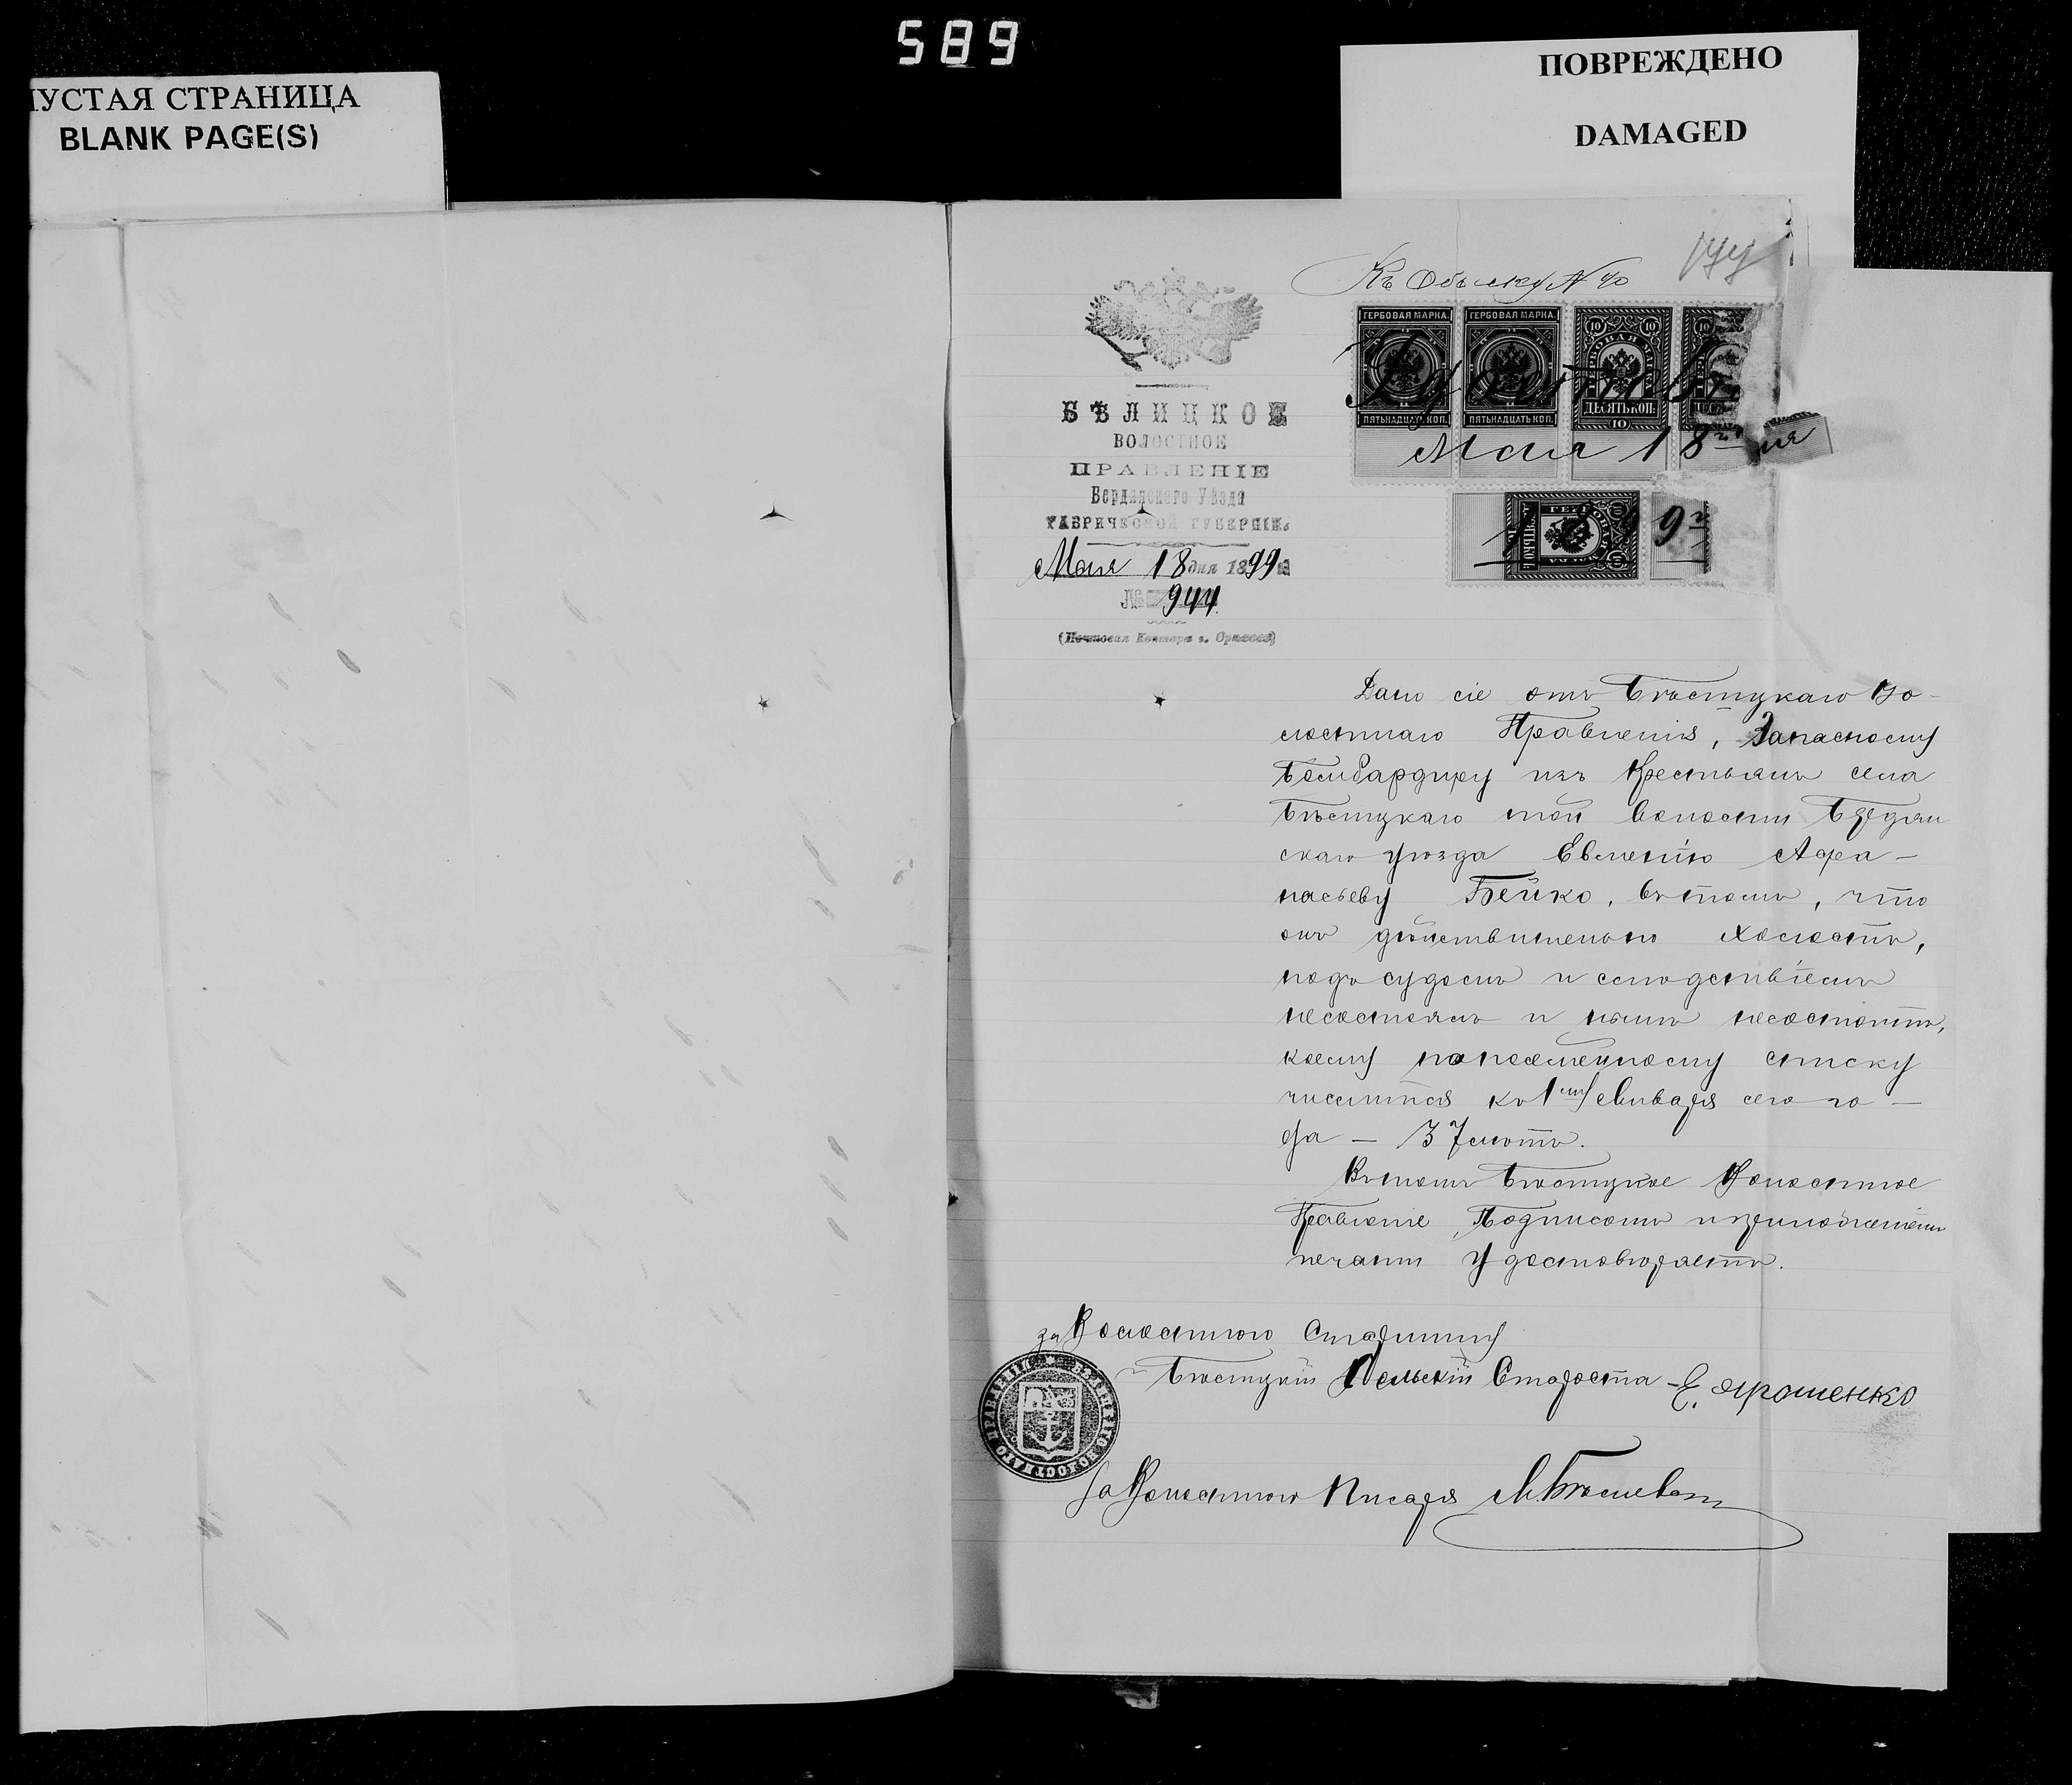 589
ПУСТАЯ СТРАНИЦА
BLANK PAGE(S)
ПОВРЕЖДЕНО
DAMAGED
Къ Обыску № 40
ГЕРБОВАЯ МАРКА. ГЕРБОВАЯ МАРКА.
ПЯТЬНАДЦАТЬ КОП. ПЯТЬНАДЦАТЬ КОП. ДЕСЯТЬ КОП.
Мая 18го дня
1899г
БѢЛИЦКОЕ
ВОЛОСТНОЕ
ПРАВЛЕНІЕ
Бердянского Уѣзда
ТАВРИЧЕСКОЙ ГУБЕРНІИ.
Мая 18 дня 1899 г.
№ 944
(Почтовая Контора г. Орѣховъ)
Дано сіе отъ Бѣлицкаго Во-
лостнаго Правленія, Запасному
Бомбардиру изъ крестьянъ села
Бѣлицкаго той волости Бердян
скаго уѣзда Евменію Афа-
насьеву Бейко, въ томъ, что
онъ дѣйствительно холостъ,
подъ судомъ и слѣдствіемъ
несостоялъ и нынѣ несостоитъ,
коему по посемейному списку
числится къ 1му Января сего го-
да - 37 лѣтъ.
Въ томъ Бѣлицкое Волостное
Правленіе, Подписомъ и приложеніемъ
печати Удостовѣряетъ.
за Волостного Старшину
Бѣлицкій Сельскій Староста - Е. Ярошенко
За Волостного Писаря